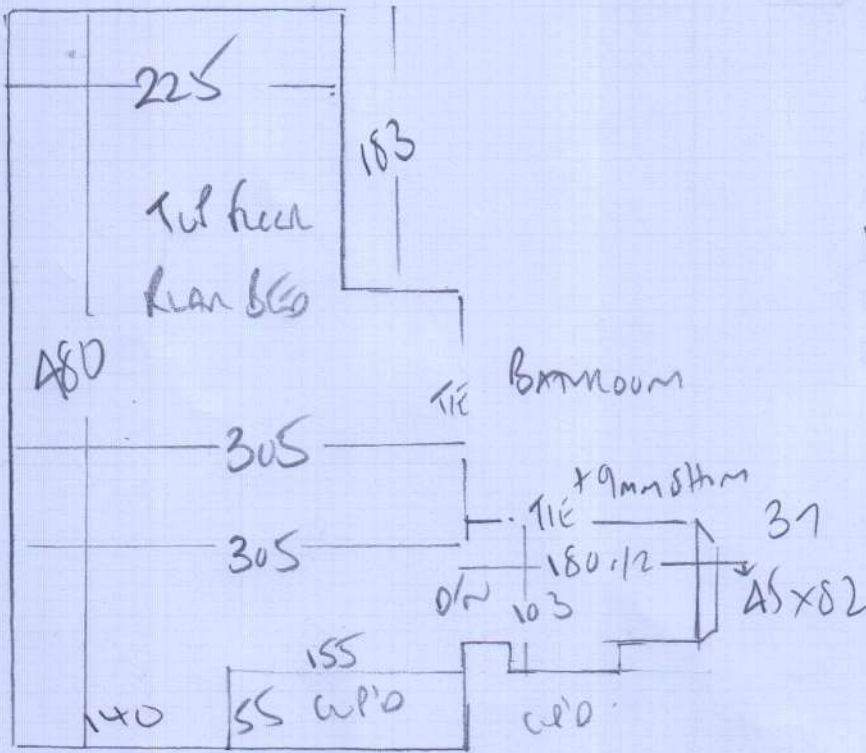 225
183
TOP FLOOR
REAR BED
480
BATHROOM
TIE
305
+ 9mm SHIM
TIE
31
305
180 1/2
45 x 82
D/N
103
155
140
55 CUP'D
CUP'D